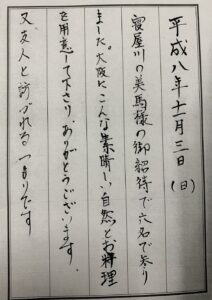 平成八年十一月三日(日)
寝屋川の美馬様の御招待で六名で参り
ました。大阪にこんな素晴しい自然とお料理
を用意して下さり、ありがとうございます。
又、友人と訪づれるつもりです